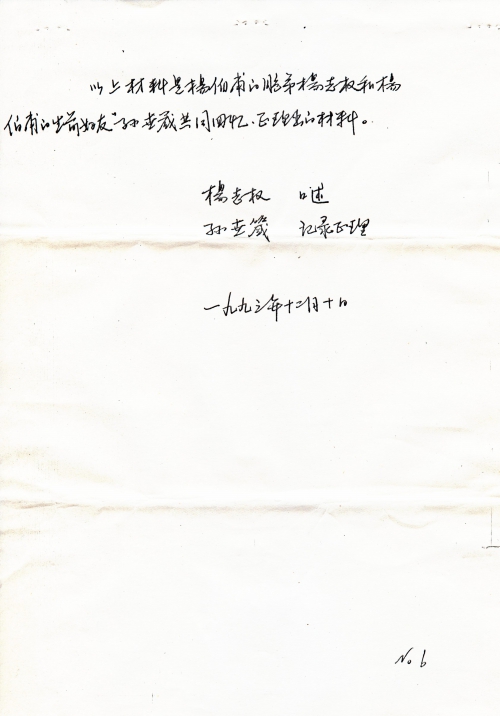 以上材料是楊伯甫的胞弟楊志权和楊
伯甫的生前好友"孙世箴共同回忆、正理出的材料。
楊志权 口述
孙世箴 记录正理
一九九三年十二月十日
No 6